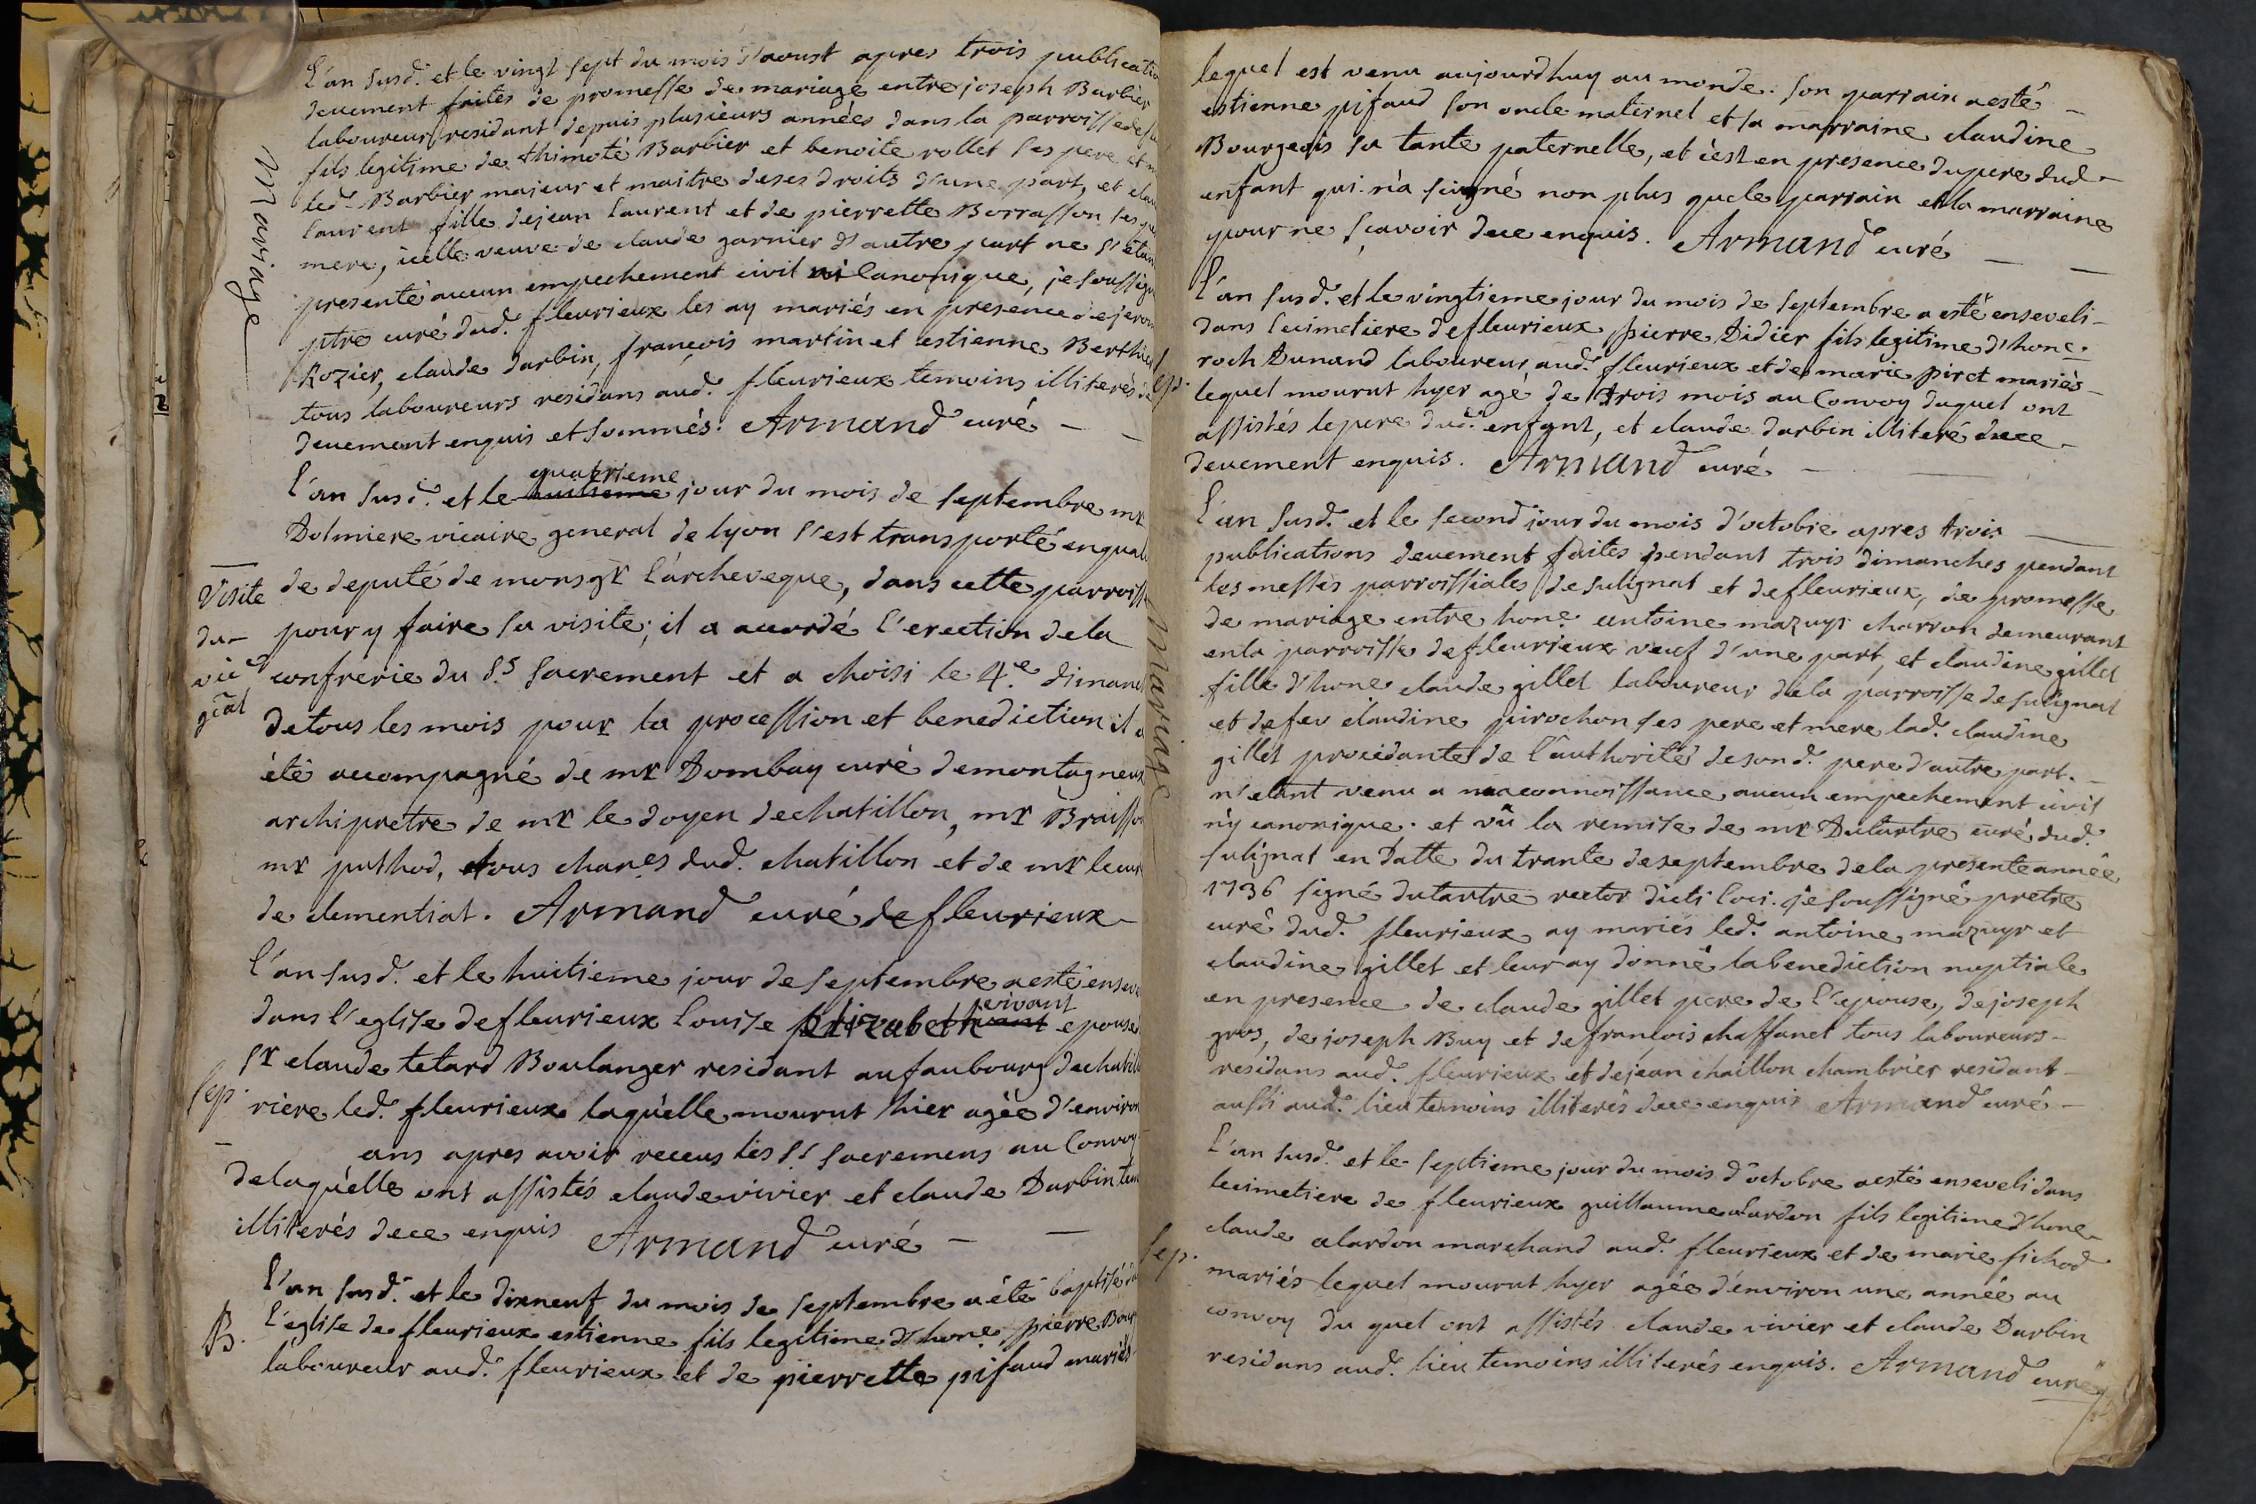 Mariage
L'an susd. et le vingt sept du mois d'aoust apres trois publicatio
deuement faites de promesse de mariage entre joseph Barbier
laboureur residant depuis plusieurs années dans la parroisse de
fils legitime de thimoté Barbier et benoite rollet ses pere et m
led. Barbier majeur et maitre de ses droits d'une part, et clau
laurent fille de jean laurent et de pierrette Borrasson ses pe
mere, icelle veuve de claude garnier d'autre part ne s'etan
presenté aucun empechement civil ni Canonique, je soussign
ptre curé dud. fleurieux les ay mariés en presence de jerom
Rozier, claude darbin, françois martin et estienne Berthie
tous laboureurs residans aud. fleurieux temoins illiterés de
deuement enquis et sommés. Armand curé
L'an susd. et le huitieme quatrieme jour du mois de septembre mr
Dolmiere vicaire general de lyon s'est transporté en qual
Visite du vic gñal
de deputé de monsgr l'archeveque, dans cette parroiss
pour y faire sa visite; il a accordé l'erection de la
confrerie du St. Sacrement et a choisi le 4e. dimanc
de tous les mois pour la procession et benediction il a
été accompagné de mr Dombay curé de montagneux
archipretre de mr le doyen de chatillon, mr Braisso
mr puthod, tous chanes dud. chatillon et de mr le cur
de clementiat. Armand curé de fleurieux
L'an susd. et le huitieme jour de septembre a esté enseve
dans l'eglise de fleurieux Louise Elizabeth vivant epouse
sr claude tetard Boulanger residant au faubourg de chatill
Sep.
riere led. fleurieux laquelle mourut hier agée d'environ
ans apres avoir receus les St. Sacremens au Convoy
de laquelle ont assistés claude vivier et claude Darbin tem
illiterés de ce enquis Armand curé
L'an susd. et le dixneuf du mois de septembre a été baptisé da
B.
l'eglise de fleurieux estienne fils legitime d'hone. pierre Bour
laboureur aud. fleurieux et de pierrette pifaud mariés
lequel est venu aujourdhuy au monde. son parrain a esté
estienne pifaud son oncle maternel et sa marraine claudine
Bourgeois sa tante paternelle, et c'est en presence du pere dud.
enfant qui n'a signé non plus que le parrain et la marraine
pour ne sçavoir de ce enquis. Armand curé
L'an susd. et le vingtieme jour du mois de septembre a esté enseveli
dans le cimetiere de fleurieux pierre Didier fils legitime d'hone.
Sep.
roch Dunand laboureur aud. fleurieux et de marie piret mariés
lequel mourut hyer agé de trois mois au Convoy duquel ont
assistés le pere dud. enfant, et claude darbin illiteré de ce
deuement enquis. Armand curé
Mariage
L'an susd. et le second jour du mois d'octobre apres trois
publications deuement faites pendant trois dimanches pendant
les messes parroissiales de sulignat et de fleurieux, de promesse
de mariage entre hone. antoine mazuyr charron demeurant
en la parroisse de fleurieux veuf d'une part, et claudine gillet
fille d'hone claude gillet laboureur de la parroisse de sulignat
et de feu claudine pirochon ses pere et mere lad. claudine
gillet procedante de l'authorité de sond. pere d'autre part.
n'etant venu a ma connoissance aucun empechement civil
n'y canonique. et vû la remise de mr Dutartre curé dud.
sulignat en datte du trante de septembre de la presente année
1736 signé dutartre rector dicti loci. je soussigné pretre
curé dud. fleurieux ay mariés led. antoine mazuyr et
claudine gillet et leur ay donné la benediction nuptiale
en presence de claude gillet pere de l'epouse, de joseph
gros, de joseph Buy et de françois chaffanet tous laboureurs
residans aud. fleurieux et de jean chaillon chambrier residant
aussi aud. lieu temoins illiterés de ce enquis Armand curé
L'an susd. et le septieme jour du mois d'octobre a esté enseveli dans
le cimetiere de fleurieux guillaume alardon fils legitime d'hone
Sep.
claude alardon marchand aud. fleurieux et de marie fichod
mariés lequel mourut hyer agée d'environ une année au
convoy du quel ont assistés claude vivier et claude Darbin
residans aud. lieu temoins illiterés enquis. Armand curé